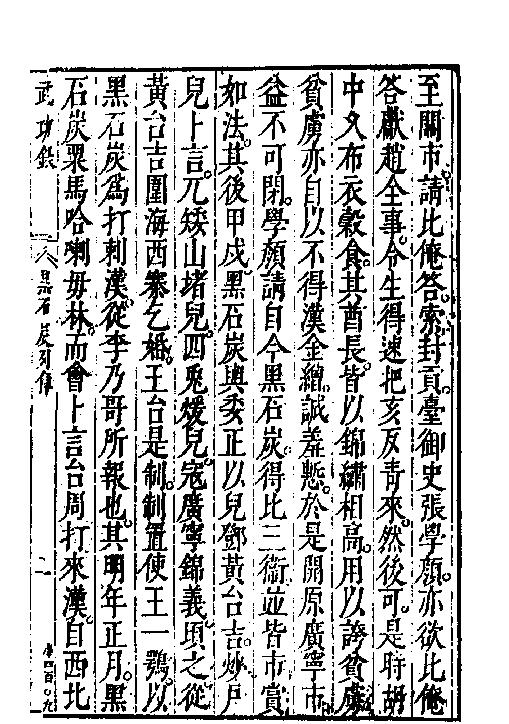 至關市請比俺荅索封貢臺御史張學顏亦欲比俺
荅獻趙全事令生得速把亥反青來然後可是時胡
中又布衣穀食其酋長皆以錦繡相高用以誇貧虜
貧虜亦自以不得漢金繒誠羞慙於是開原廣寧市
益不可閉學顏請自今黑石炭得比三衞並皆市賞
如法其後甲戌黑石炭與委正以兒鄧黃台吉炒戶
兒卜言兀矮山堵兒四兎煖兒寇廣寧錦義頃之從
黃台吉圍海西寨乞婚王台是制制置使王一鶚以
黑石炭為打剌漢從李乃哥所報也其明年正月黑
石炭粟馬哈喇毋林而會卜言台周打來漢自西北
武功錄
黑石炭列傳
二